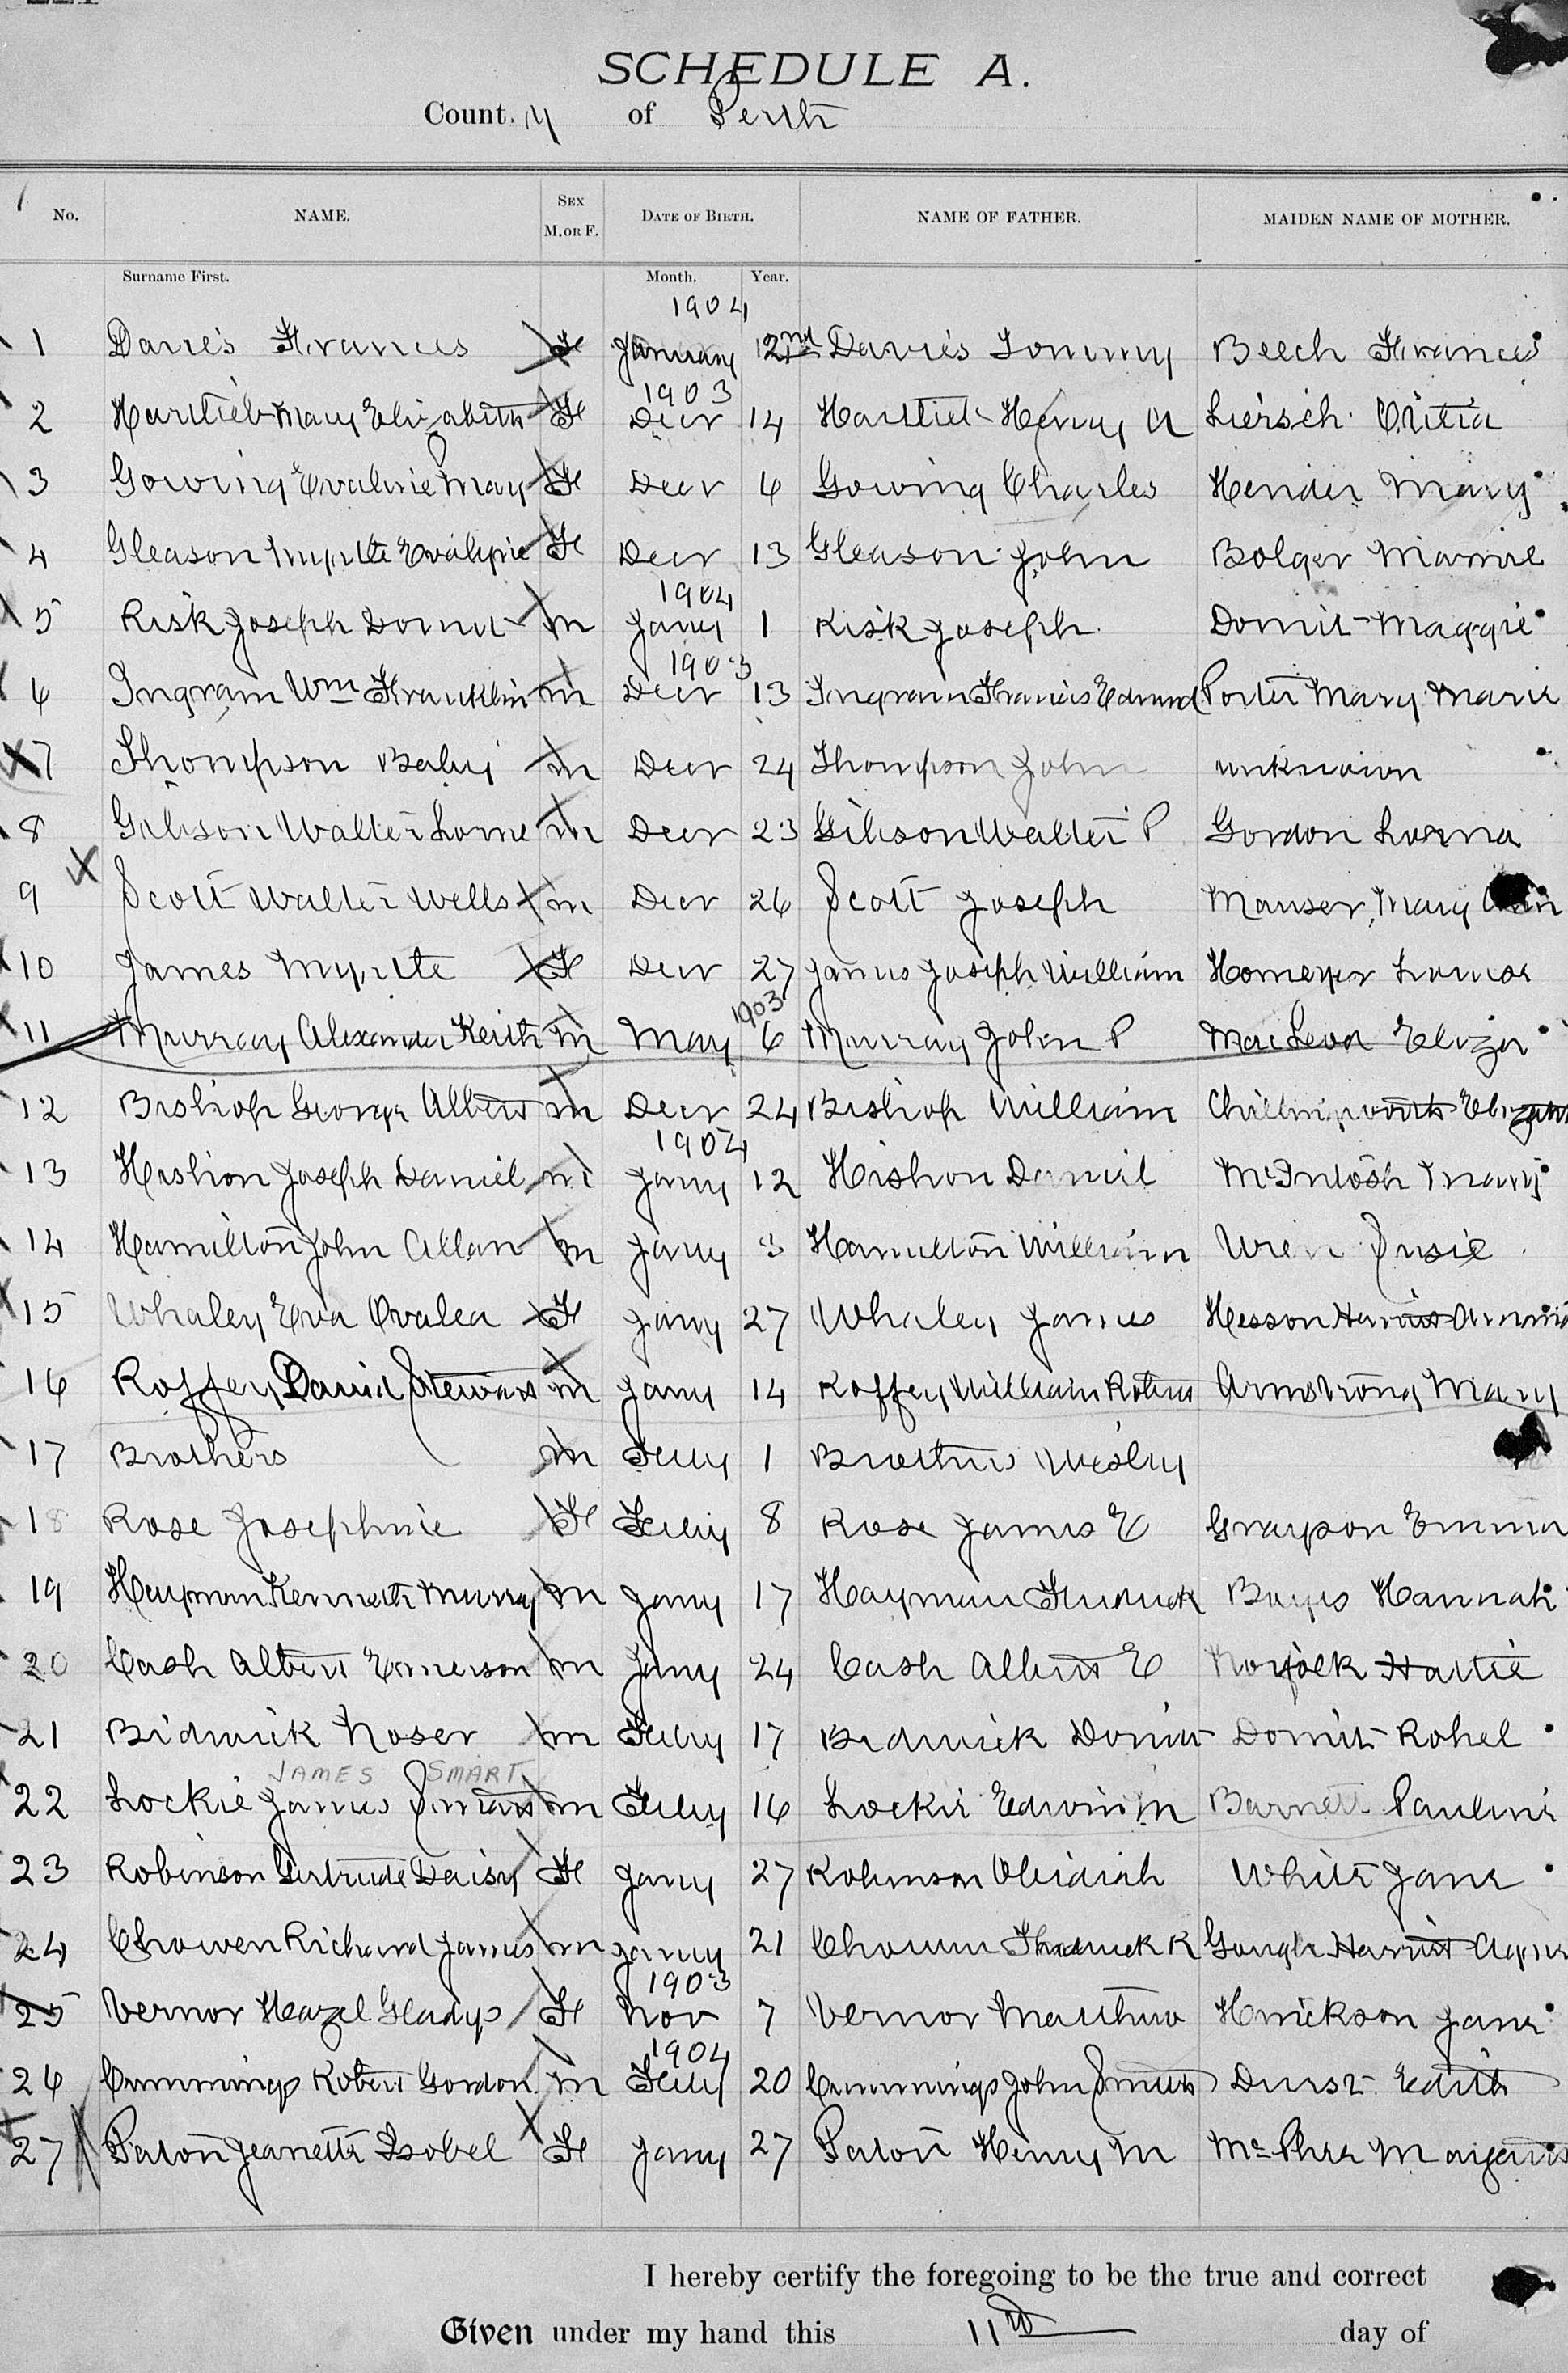 SCHEDULE A.
County of Perth
No. NAME. SEX M. OR F. DATE OF BIRTH. NAME OF FATHER. MAIDEN NAME OF MOTHER.
Surname First. Month. Year.
1904
1 Davies Frances F January 2nd Davies Tommy Beech Frances
1903
2 Hartlieb Mary Elizabeth F Decr 14 Hartlieb Henry A Liersch
3 Gowing Evaline May F Decr 6 Gowing Charles Hender Mary
4 Gleason Myrtle Evalyne F Decr 13 Gleason John Bolger Mamie
1904
5 Risk Joseph Domit m Jany 1 Risk Joseph Domit Maggie
1903
6 Ingram Wm Franklin m Decr 13 Ingram Francis Edmund Porter Mary Marie
7 Thompson Baby m Decr 24 Thompson John unknown
8 Gibson Walter Lorne m Decr 23 Gibson Walter P Gordon Lorna
9 Scott Walter Wells m Decr 26 Scott Joseph Manser Mary Ann
10 James Myrtle F Decr 27 James Joseph William Homeyer Louise
1903
11 Murray Alexander Keith m May 6 Murray John P MacLeod Eliza
12 Bishop George Albert m Decr 24 Bishop William Chillingworth Elizabeth
1904
13 Hishon Joseph Daniel m Jany 12 Hishon Daniel McIntosh Mary
14 Hamilton John Allan m Jany 3 Hamilton William Wren Susie
15 Whaley Eva Ovalea F Jany 27 Whaley James Hesson Harriet Annie
16 Roffey David Stewart m Jany 14 Roffey William Robert Armstrong Mary
17 Brothers m Feby 1 Brothers Wesley
18 Rose Josephine F Feby 8 Rose James E Grayson Emma
19 Hayman Kenneth Murray m Jany 17 Hayman Frederick Bayes Hannah
20 Cash Albert Emerson m Jany 24 Cash Albert E Norfolk Hattie
21 Bidwick Noser m Feby 17 Bidwick Domit Domit Rohel
JAMES SMART
22 Lockie James Smart m Feby 16 Lockie Edwin M Barnett Pauline
23 Robinson Gertrude Daisy F Jany 27 Robinson Obidiah White Jane
24 Chowen Richard James m Jany 21 Chowen Frederick R Gough Harriet Agnes
1903
25 Vernor Hazel Gladys F Nov 7 Vernor Matthew Hnickson Jane
1904
26 Cummings Robert Gordon m Feby 20 Cummings John Smith Durst Edith
27 Paton Jeanette Isobel F Jany 27 Paton Henry M McPhee Margaret
I hereby certify the foregoing to be the true and correct
Given under my hand this 11th day of